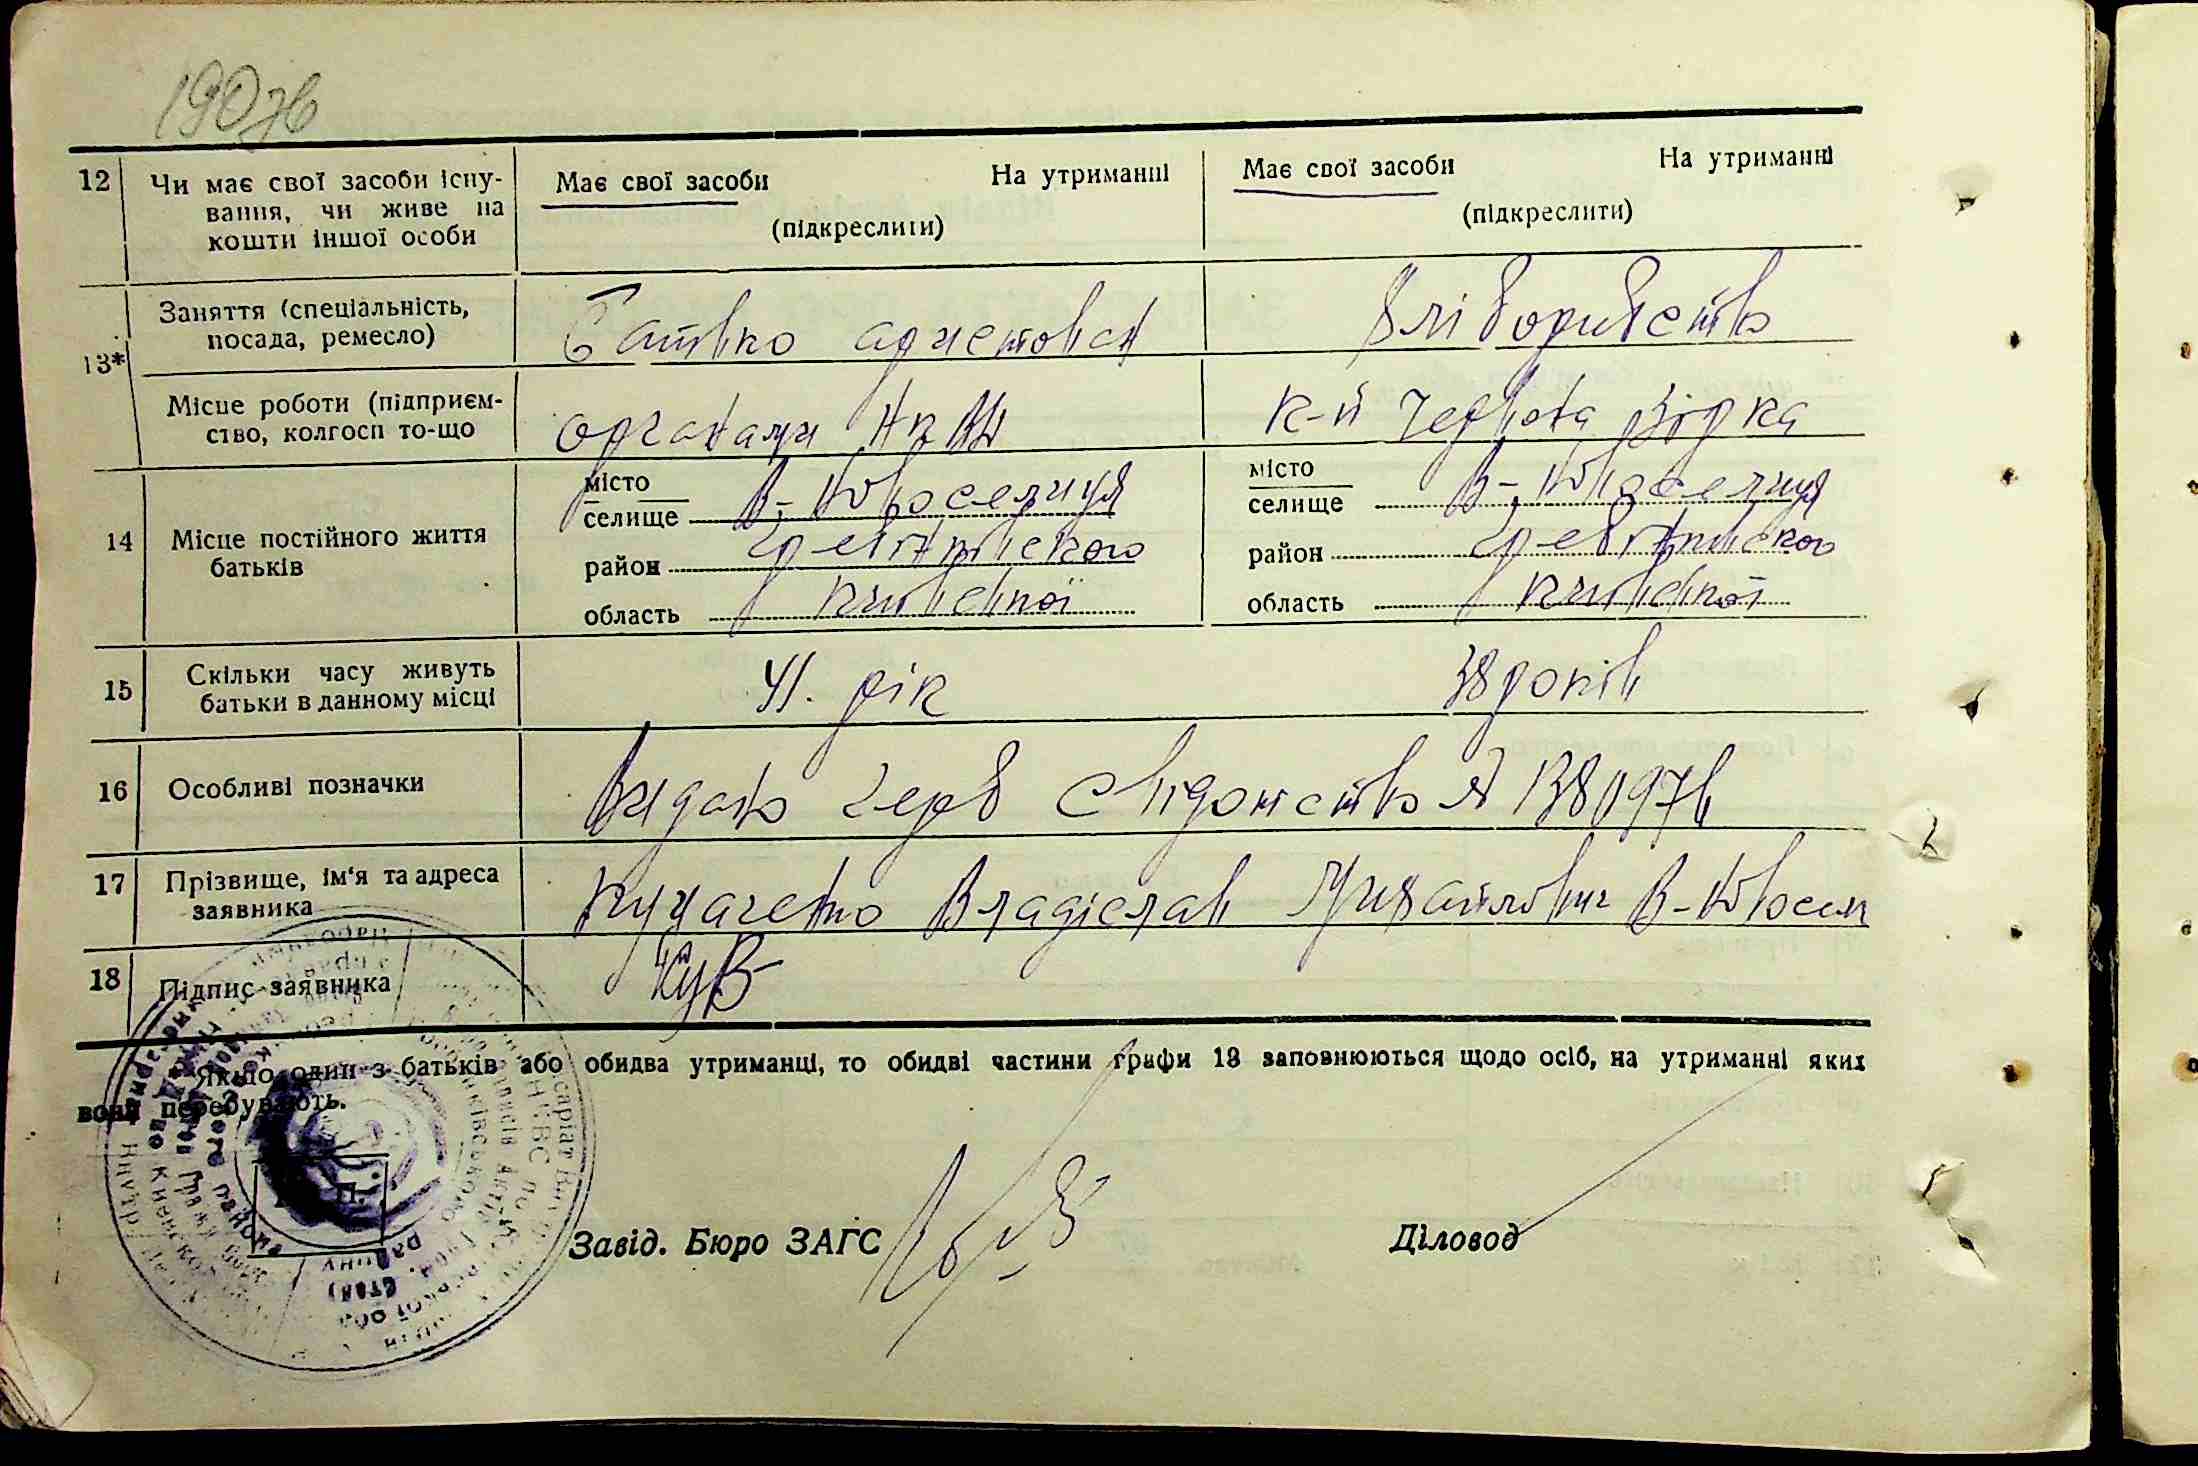 190зв
12 Чи має свої засоби існу- Має свої засоби На утриманні Має свої засоби На утриманні
вання, чи живе на (підкреслити) (підкреслити)
кошти іншої особи
13* Заняття (спеціальність, Батько арчстован Хліборобство
посада, ремесло)
Місце роботи (підприєм- органами НКВД к-п Червона Зірка
ство, колгосп то-що
14 Місце постійного життя місто В-Новоселиця місто В-Новоселиця
батьків селище селище
район Гребінківского район Гребінківского
область Київскої область Київскої
15 Скільки часу живуть 41. рік 38 років
батьки в данному місці
16 Особливі позначки Видано герб свідоцтво №
17 Прізвище, ім'я та адреса Владіслав Михайлович В-Новосел
заявника
18 Підпис заявника
Якщо один з батьків або обидва утриманці, то обидві частини графи 13 заповнюються щодо осіб, на утриманні яких
вони перебувають.
Завід. Бюро ЗАГС Діловод